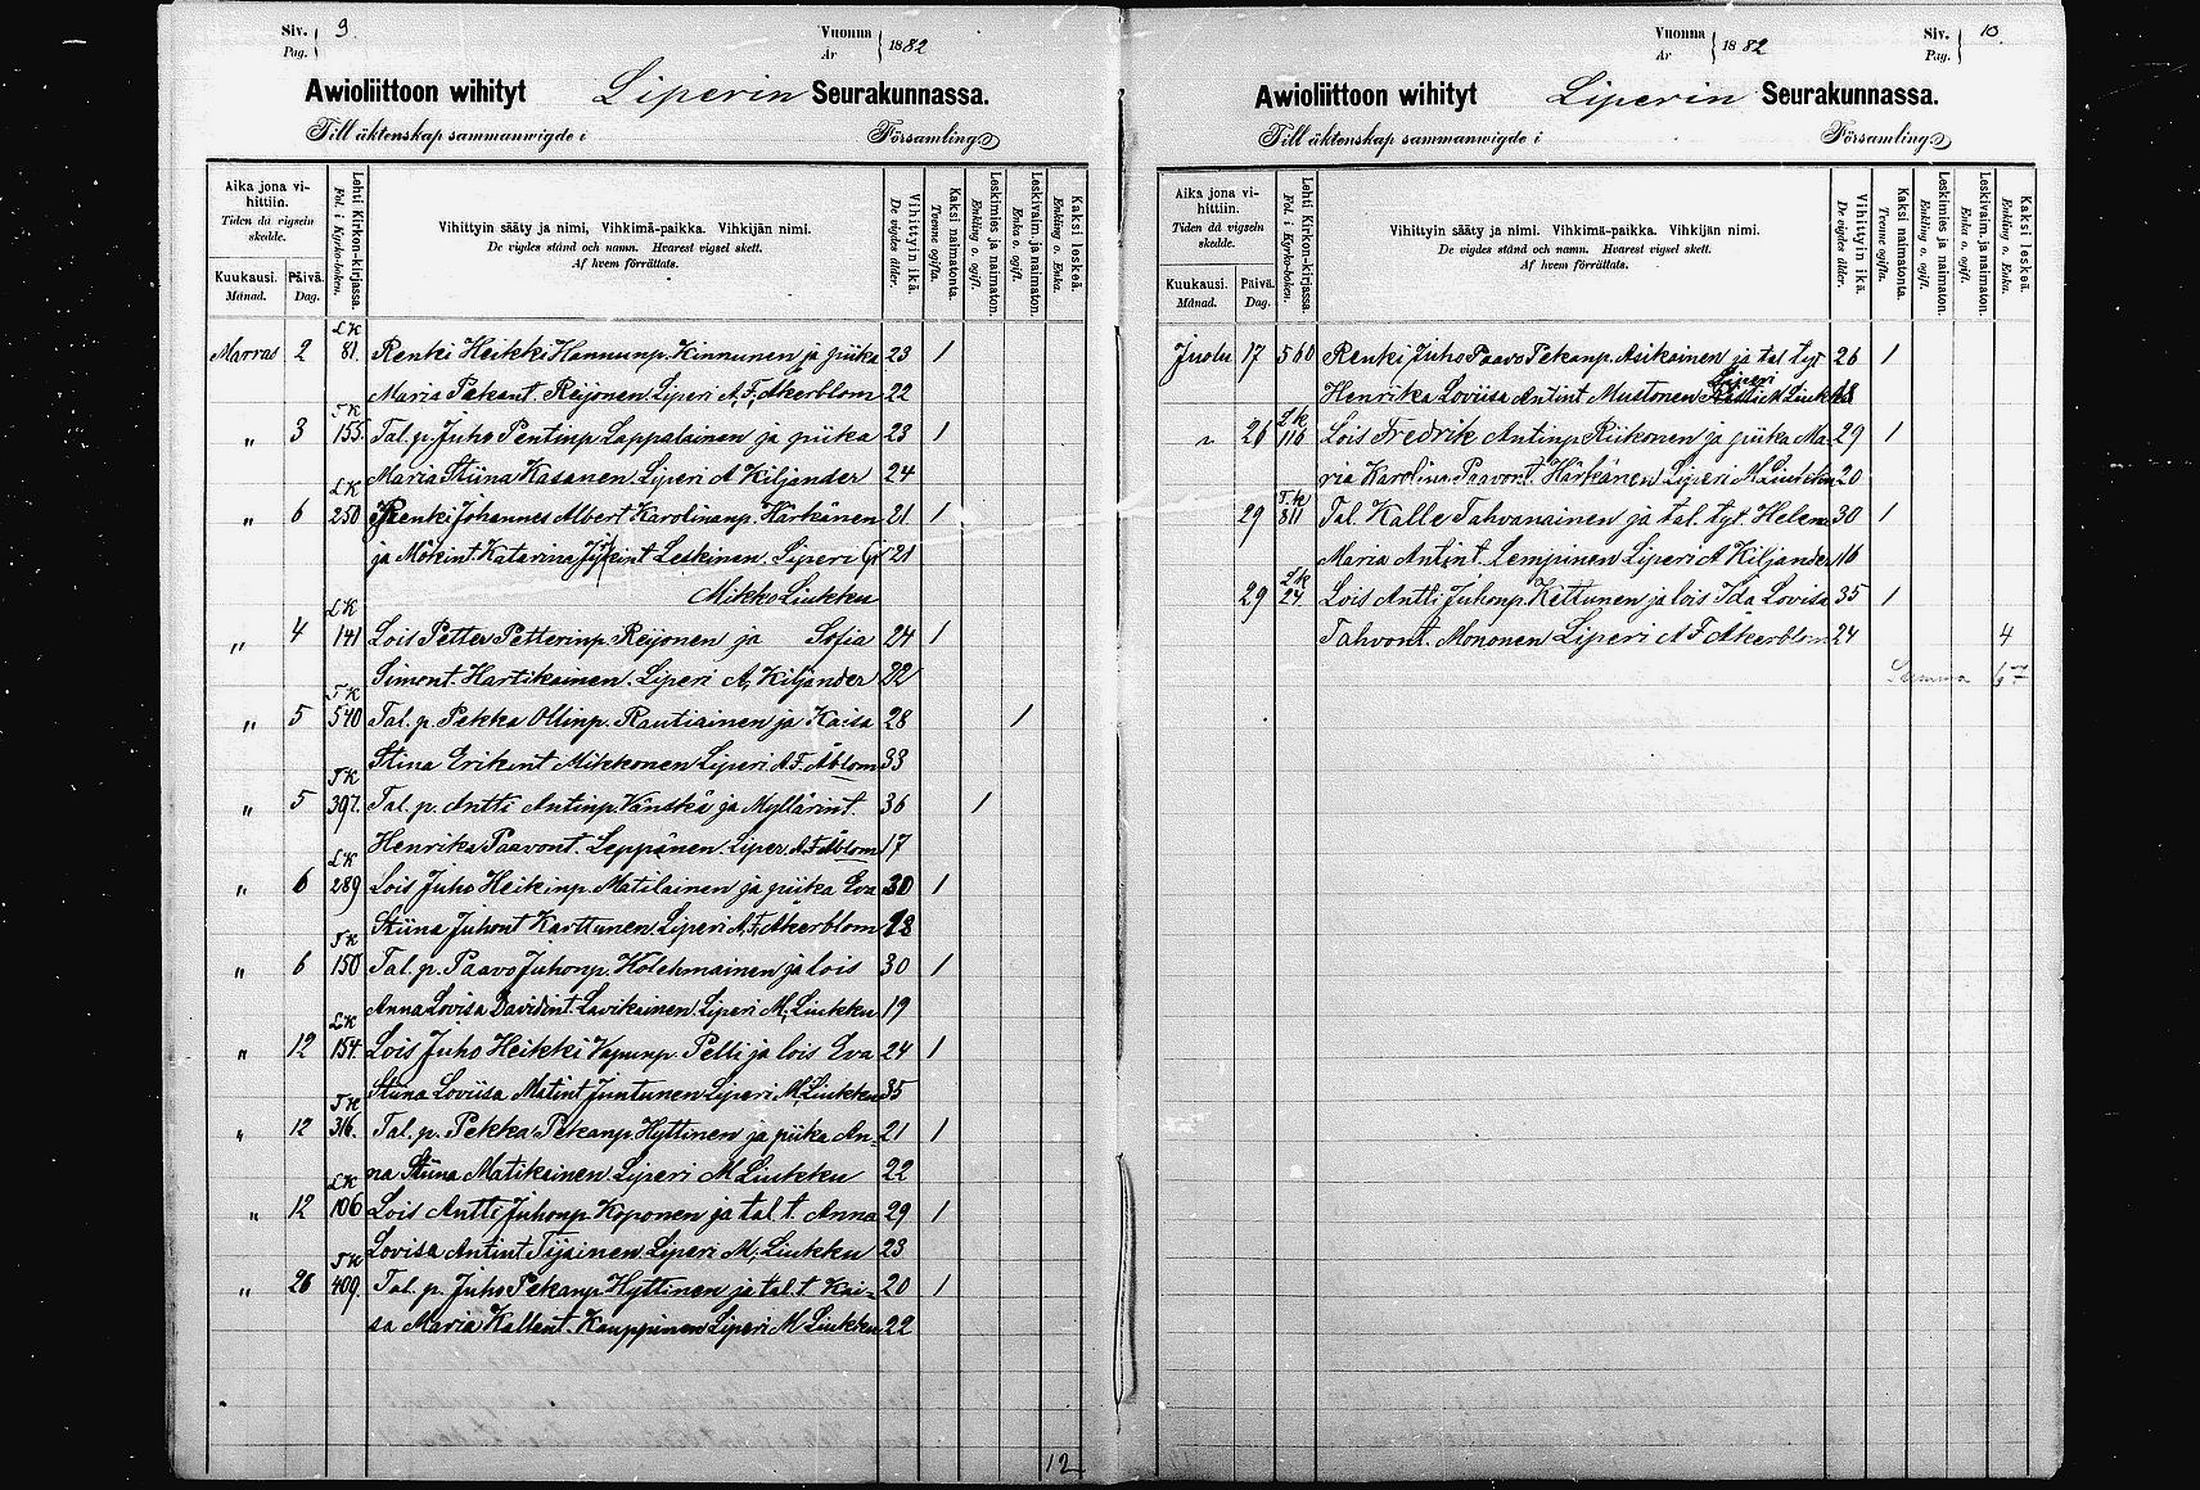 Siv. 9.
Pag.
Vuonna 1882
År
Awioliittoon wihityt Liperin Seurakunnassa.
Till äktenskap sammanwigde i Församling.
Aika jona vi-
hittiin.
Tiden då vigseln
skedde.
Kuukausi.
Månad.
Päivä.
Dag.
Lehti Kirkon-kirjassa.
Fol. i Kyrko-boken.
Vihittyin sääty ja nimi, Vihkimä-paikka. Vihkijän nimi.
De vigdes stånd och namn. Hvarest vigsel skett.
Af hvem förrättats.
Vihittyin ikä.
De vigdes ålder.
Kaksi naimatonta.
Tvenne ogifta.
Leskimies ja naimaton.
Enkling o. ogift.
Leskivaim. ja naimaton.
Enka o. ogift.
Kaksi leskeä.
Enkling o. Enka.
LK
Marras 2 81. Renki Heikki Hannunp. Kinnunen ja piika 23 1
Maria Pekant. Reijonen. Liperi A. F. Akerblom 22
TK
" 3 155. Tal. p. Juho Pentinp Lappalainen ja piika 23 1
Maria Stiina Kasanen. Liperi A Kiljander 24
LK
" 6 250 Renki Johannes Albert Karolinanp. Härkänen 21 1
ja Mökint. Katarina Leskinen. Liperi 21
Mikko Liukku
LK
" 4 141 Lois Petter Petterinp. Reijonen ja Sofia 24 1
Simont. Hartikainen. Liperi A. Kiljander 22
TK
" 5 540 Tal. p. Pekka Ollinp. Rautiainen ja Kaisa 28 1
Stina Erikint Mikkonen Liperi. A.F. Åblom 33
TK
" 5 397. Tal. p. Antti Antinp. Vänskä ja Myllärint. 36 1
Henrika Paavont. Leppänen. Liper. A.F. Åblom 17
LK
" 6 289 Lois Juho Heikinp. Matilainen ja piika Eva 30 1
Stiina Juhont Karttunen. Liperi A. F. Akerblom 18
TK
" 6 150 Tal. p. Paavo Juhonp. Kolehmainen ja lois 30 1
Anna Lovisa Davidint. Lavikainen. Liperi M. Liukku 19
LK
" 12 154. Lois Juho Heikki Vapunp. Pelli ja lois Eva 24 1
Stiina Loviisa Matint Juntunen Liperi M. Liukku 35
TK
" 12 316. Tal. p. Pekka Pekanp. Hyttinen ja piika An= 21 1
na Stiina Matikainen Liperi M Liukku 22
LK
" 12 106 Lois Antti Juhonp. Koponen ja tal. t. Anna 29 1
Lovisa Antint Tijainen. Liperi M. Liukku 23
TK
" 26 409. Tal. p. Juho Pekanp. Hyttinen ja tal. t Kai= 20 1
sa Maria Kallent. Kauppinen Liperi M Liukku 22
12
Vuonna 1882
År
Siv. 10.
Pag.
Awioliittoon wihityt Liperin Seurakunnassa.
Till äktenskap sammanwigde i Församling.
Aika jona vi-
hittiin.
Tiden då vigseln
skedde.
Kuukausi.
Månad.
Päivä.
Dag.
Lehti Kirkon-kirjassa.
Fol. i Kyrko-boken.
Vihittyin sääty ja nimi. Vihkimä-paikka. Vihkijän nimi.
De vigdes stånd och namn. Hvarest vigsel skett.
Af hvem förrättats.
Vihittyin ikä.
De vigdes ålder.
Kaksi naimatonta.
Tvenne ogifta.
Leskimies ja naimaton.
Enkling o. ogift.
Leskivaim. ja naimaton.
Enka o. ogift.
Kaksi leskeä.
Enkling o. Enka.
Juolu 17 560 Renki Juho Paavo Pekanp. Asikainen ja tal tyt 26 1
Liperi
Henrika Loviisa Antint Mustonen M Liukku 18
Lk
" 26 116 Lois Fredrik Antinp Riikonen ja piika Ma- 29 1
ria Karolina Paavont. Härkänen Liperi M Liukku 20
T.k
29 811 Tal. Kalle Tahvanainen ja tal. tyt. Helena 30 1
Maria Antint. Lempinen Liperi A Kiljander 16
Lk
29 24 Lois Antti Juhonp. Kettunen ja lois Ida Lovisa 35 1
Tahvont. Mononen Liperi A F Akerblom 24 4
Summa